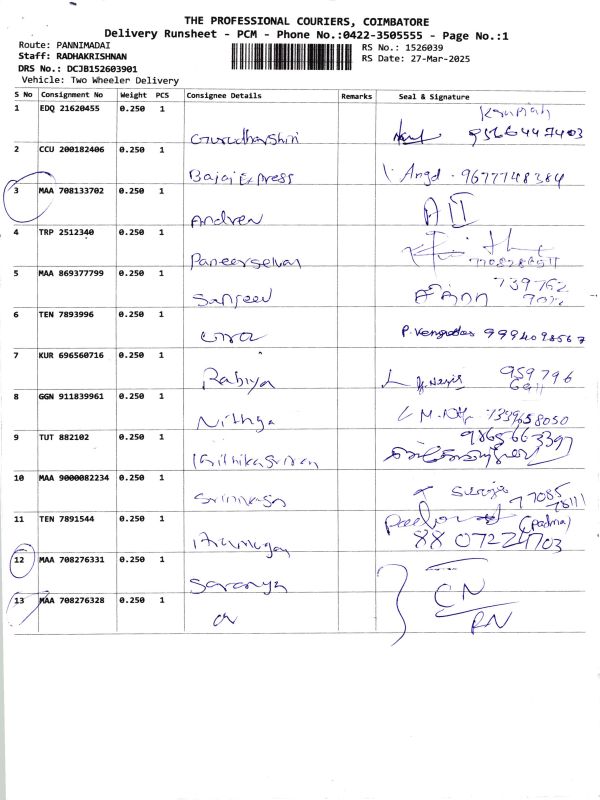 THE PROFESSIONAL COURIERS, COIMBATORE
Delivery Runsheet - PCM - Phone No.:0422-3505555 - Page No.:1
Route: PANNIMADAI
Staff: RADHAKRISHNAN
DRS No.: DCJB152603901
Vehicle: Two Wheeler Delivery
RS No.: 1526039
RS Date: 27-Mar-2025
S No Consignment No Weight PCS Consignee Details Remarks Seal & Signature
1 EDQ 21620455 0.250 1 9566447403
2 CCU 200182406 0.250 1 Bajaj Express Angd . 9677748384
3 MAA 708133702 0.250 1 Andrea
4 TRP 2512340 0.250 1 Paneerselvan
5 MAA 869377799 0.250 1 Sanjeev 739762
6 TEN 7893996 0.250 1 P. 9994098567
7 KUR 696560716 0.250 1 Rabiya 959796
8 GGN 911839961 0.250 1 Nithya 7339658050
9 TUT 882102 0.250 1 9865663397
10 MAA 9000082234 0.250 1 Saroja 77085
78111
11 TEN 7891544 0.250 1 (Padma)
88 07224703
12 MAA 708276331 0.250 1 Saranya CN
13 MAA 708276328 0.250 1 RN